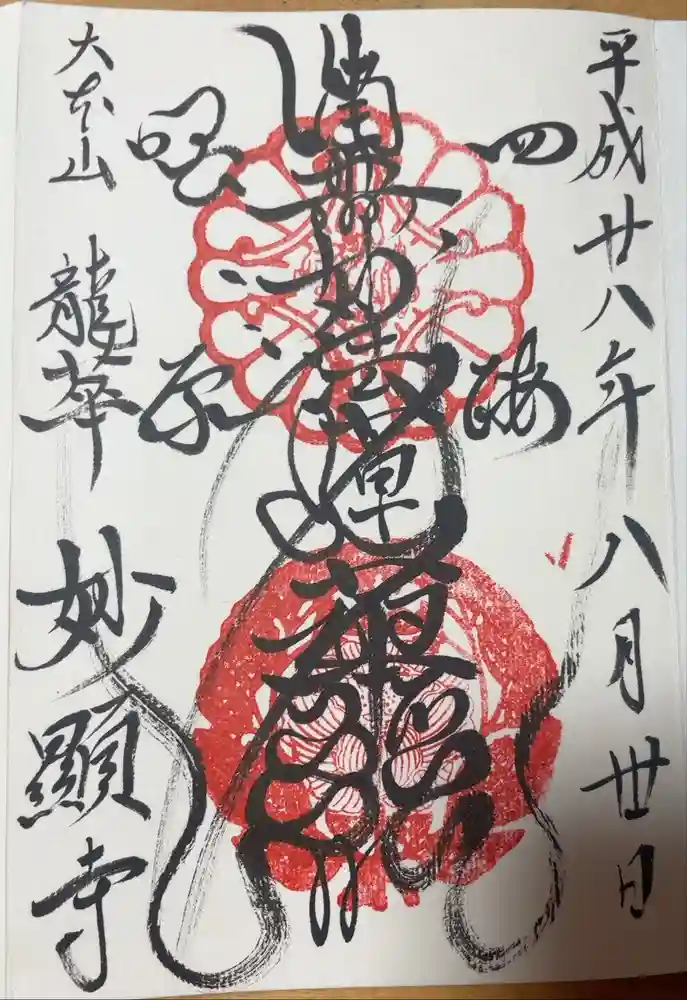 平成廿八年八月丗日
四海
南無妙法蓮華経
唱導
大本山 龍華 妙顯寺